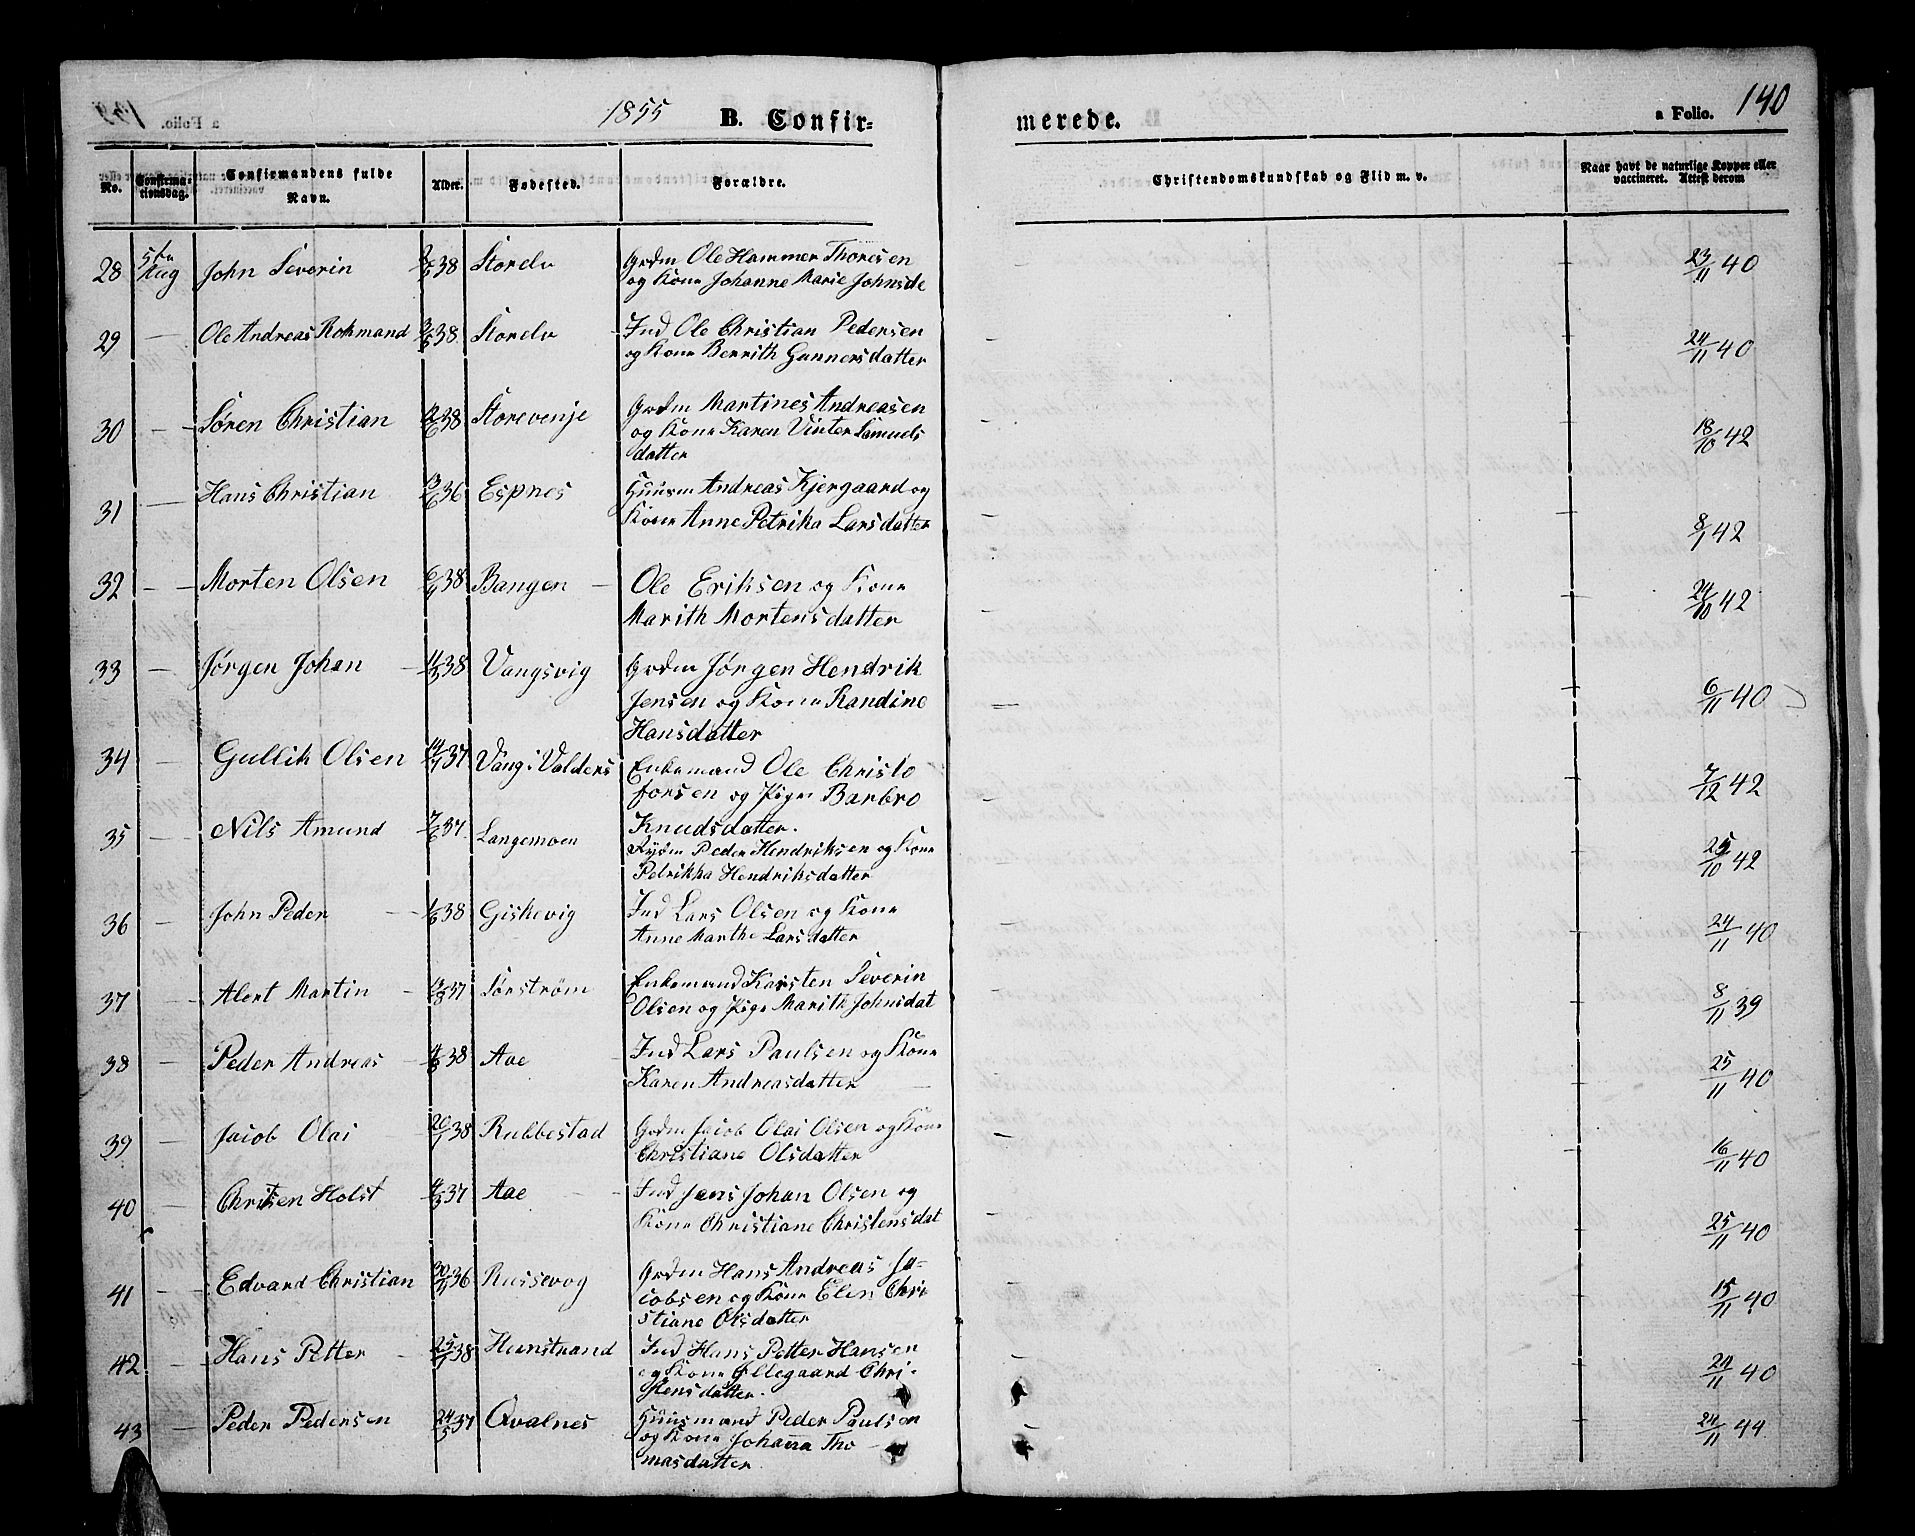 1855 B. Confir-
merede.
a Folio. 140
No. Confirma-tionsdag. Confirmandens fulde Navn. Alder. Fødested. Forældre. Christendomskundskab og Flid m. v. Naar havt de naturlige Kopper eller vaccineret. Attest derom
28 5te Aug John Severin 38 Storelv Grdm Ole Hammer Thoresen 23/11 40
og Kone Johanne Marie Johnsda
29 — Ole Andreas Rokmand 38 Storelv Ind Ole Christian Pedersen — 24/11 40
og Kone Berrith Gunnersdatter
30 — Søren Christian 38 Storevenje Grdm Martines Andreasen — 18/10 42
og Kone Karen Vinter Samuels
datter
31 — Hans Christian 13/6 36 Espnes Huusm Andreas Kjergaard og — 8/1 42
Kone Anne Petrika Larsdatter
32 — Morten Olsen 38 Bangen — Ole Eriksen og Kone — 24/10 42
Marith Mortensdatter
33 — Jørgen Johan 38 Vangsvig Grdm Jørgen Hendrik — 6/11 40
Jensen og Kone Randine
Hansdatter
34 — Gullik Olsen 37 Vang i Valders Enkemand Ole Christo — 7/12 42
forsen og Pige Barbro
Knudsdatter.
35 — Nils Amund 7/6 37 Langemoen Rydm Peder Hendriksen og Kone 25/10 42
Petrikka Hendriksdatter
36 — John Peder 38 Giskevig Ind Lars Olsen og Kone — 24/11 40
Anne Marthe Larsdatter
37 — Alert Martin 37 Sørstrøm Enkemand Karsten Severin — 8/11 39
Olsen og Pige Marith Johnsdat
38 — Peder Andreas 38 Aae Ind Lars Paulsen og Kone 25/11 40
Karen Andreasdatter
39 — Jacob Olai 20/1 38 Rubbestad Grdm Jacob Olai Olsen og Kone — 16/11 40
Christiane Olsdatter
40 — Christen Holst 37 Aae — Ind Jens Johan Olsen og — 25/11 40
Kone Christiane Christensdat
41 — Edvard Christian 36 Russevog Grdm Hans Andreas Ja- 15/11 40
cobsen og Kone Elen Chri
stiane Olsdatter
42 — Hans Petter 38 Kunstrand Ind Hans Petter Hansen 24/11 40
og Kone Ellegaard Chri-
stensdatter.
43 — Peder Pedersen 24/5 37 Qvalnes Huusmand Peder Paulsen 24/11 44
og Kone Johanna Tho
masdatter.